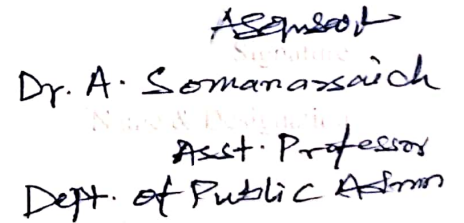 Signature
Dr. A. Somanassaich
Name & Designation
Asst. Professor
Dept. of Public Admn